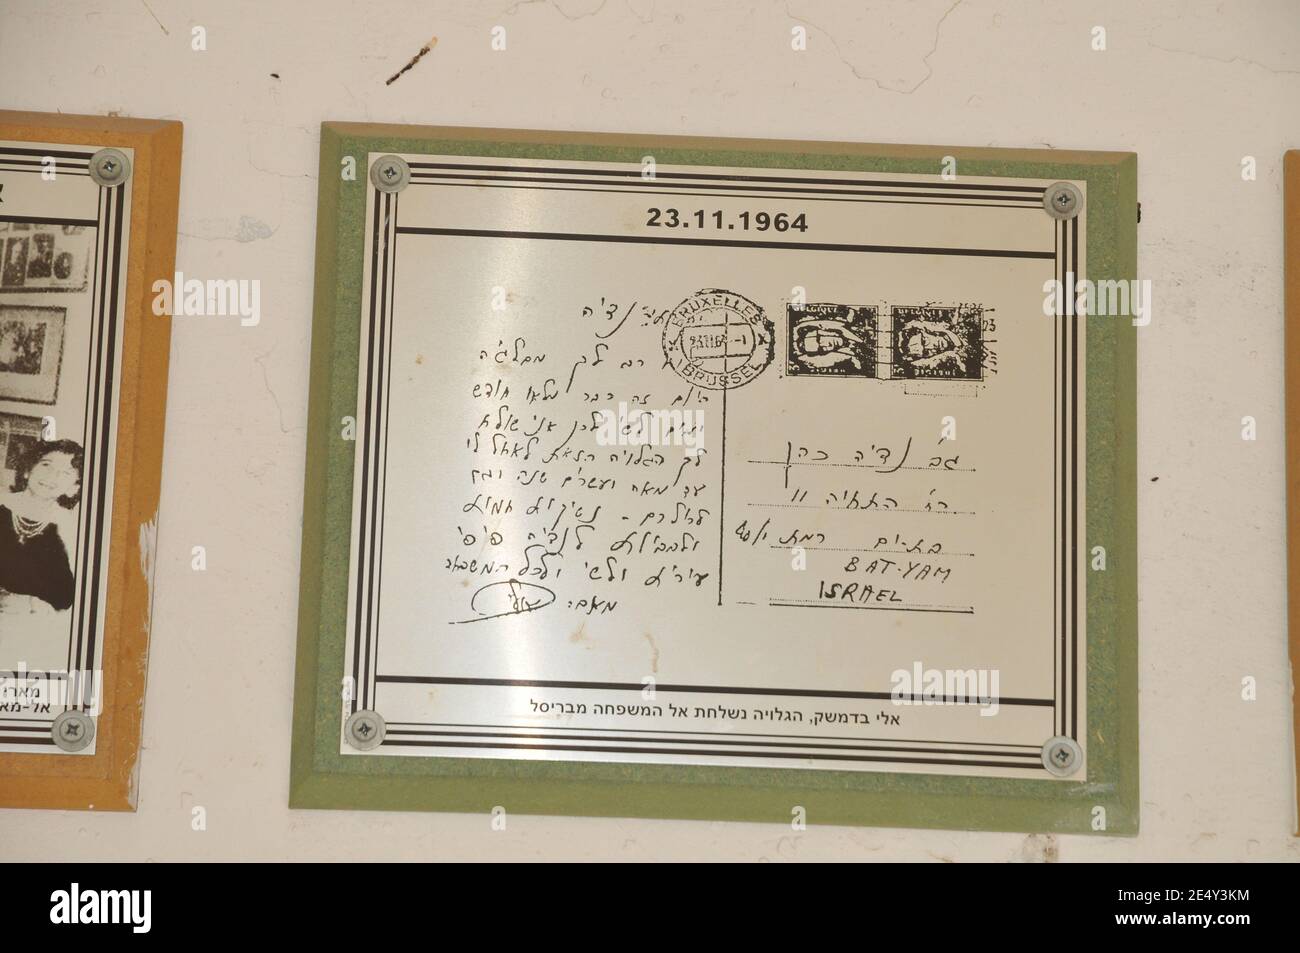 23.11.1964
נדיה
רב לך מבלגיה
היום זה כבר מלאו חודש
ימים לשי לכן אני שולח
לך הגלויה הזאת לאחל לי
עד מאה ועשרים שנה
נשיקות חמות
לנדיה פיפי
עירית ולשי ולכל המשפחה
מאבי: אלי
BRUXELLES
BRUSSEL
גב' נדיה כהן
רח' התחיה 11
בת-ים רמת יוסף
BAT-YAM
ISRAEL
אלי בדמשק, הגלויה נשלחת אל המשפחה מבריסל
מארי
אל-מא
alamy
Image ID: 2E4Y3KM
www.alamy.com